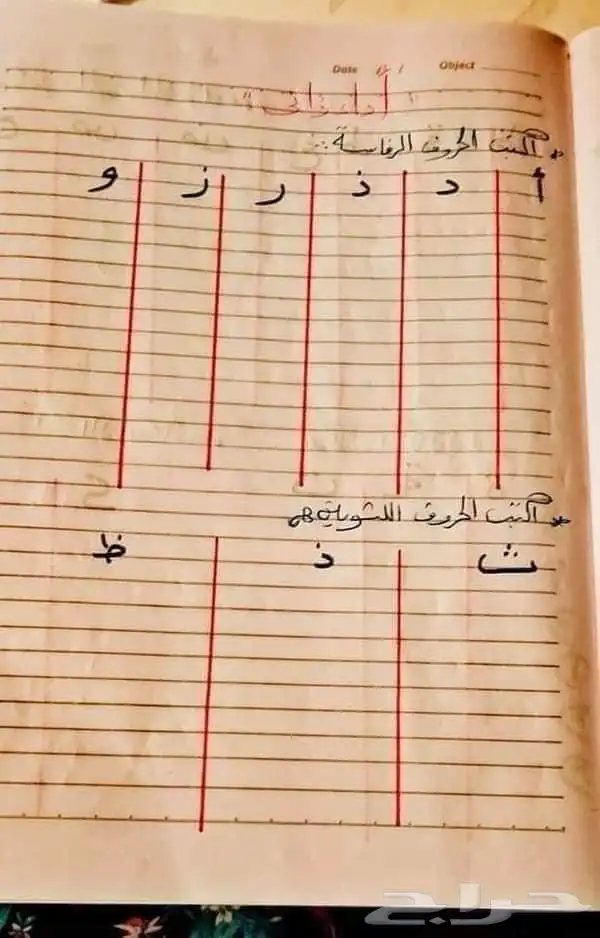 Date / / Object
" أداء ذاتي "
* اكتب الحروف الرفاسة :.
أ د ذ ر ز و
* اكتب الحروف اللثوية
ث ذ ظ
حراج